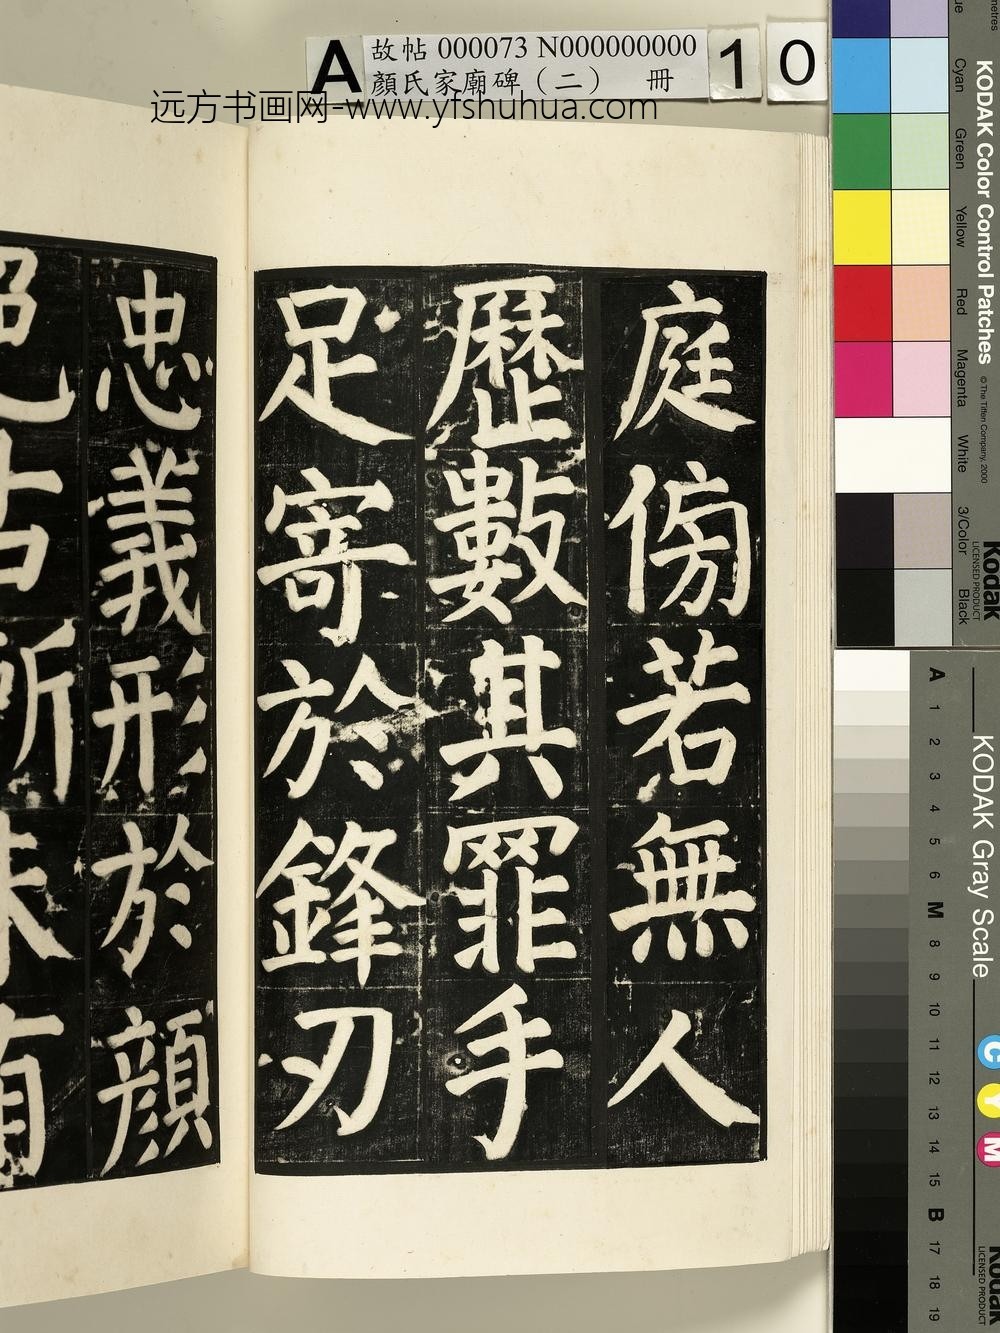 A 故帖 000073 N000000000 10
顏氏家廟碑（二） 冊
远方书画网-www.yfshuhua.com
庭傍若無人
歷數其罪手
足寄於鋒刃
忠義形於顏
色古所未有
KODAK Color Control Patches
© The Tiffen Company, 2000
Cyan Green Yellow Red Magenta White 3/Color Black
Kodak
LICENSED PRODUCT
KODAK Gray Scale
A 1 2 3 4 5 6 M 8 9 10 11 12 13 14 15 B 17 18 19
C Y M
Kodak
LICENSED PRODUCT